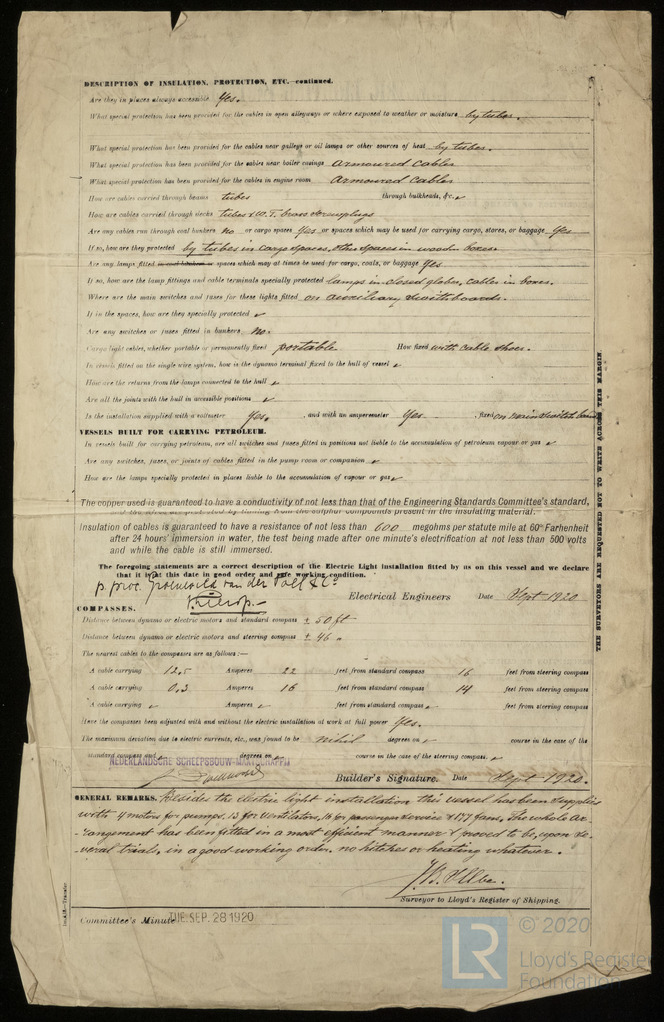 DESCRIPTION OF INSULATION, PROTECTION, ETC.—continued.
Are they in places always accessible Yes.
What special protection has been provided for the cables in open alleyways or where exposed to weather or moisture by tubes.
What special protection has been provided for the cables near galleys or oil lamps or other sources of heat by tubes.
What special protection has been provided for the cables near boiler casings armoured cables
What special protection has been provided for the cables in engine room armoured cables
How are cables carried through beams tubes through bulkheads, &c. ✓
How are cables carried through decks tubes & W.T. brass
Are any cables run through coal bunkers no or cargo spaces Yes or spaces which may be used for carrying cargo, stores, or baggage Yes
If so, how are they protected by tubes in cargo spaces, other spaces in wooden boxes.
Are any lamps fitted in coal bunkers or spaces which may at times be used for cargo, coals, or baggage Yes
If so, how are the lamp fittings and cable terminals specially protected lamps in closed globes, cables in boxes.
Where are the main switches and fuses for these lights fitted on auxiliary switchboards.
If in the spaces, how are they specially protected ✓
Are any switches or fuses fitted in bunkers no.
Cargo light cables, whether portable or permanently fixed portable How fixed with cable shoes.
In vessels fitted on the single wire system, how is the dynamo terminal fixed to the hull of vessel ✓
How are the returns from the lamps connected to the hull ✓
Are all the joints with the hull in accessible positions ✓
Is the installation supplied with a voltmeter Yes, , and with an amperemeter Yes , fixed on main switch board
VESSELS BUILT FOR CARRYING PETROLEUM.
In vessels built for carrying petroleum, are all switches and fuses fitted in positions not liable to the accumulation of petroleum vapour or gas ✓
Are any switches, fuses, or joints of cables fitted in the pump room or companion ✓
How are the lamps specially protected in places liable to the accumulation of vapour or gas ✓
The copper used is guaranteed to have a conductivity of not less than that of the Engineering Standards Committee's standard,
and the wires are protected by tinning from the sulphur compounds present in the insulating material.
Insulation of cables is guaranteed to have a resistance of not less than 600 megohms per statute mile at 60° Farhenheit
after 24 hours' immersion in water, the test being made after one minute's electrification at not less than 500 volts
and while the cable is still immersed.
The foregoing statements are a correct description of the Electric Light installation fitted by us on this vessel and we declare
that it is at this date in good order and safe working condition.
p. proc. Groeneveld van der Poll & Co
Electrical Engineers Date Sept 1920
COMPASSES.
Distance between dynamo or electric motors and standard compass ± 50 ft
Distance between dynamo or electric motors and steering compass ± 46 "
The nearest cables to the compasses are as follows:—
A cable carrying 12.5 Amperes 22 feet from standard compass 16 feet from steering compass
A cable carrying 0.3 Amperes 16 feet from standard compass 14 feet from steering compass
A cable carrying ✓ Amperes ✓ feet from standard compass ✓ feet from steering compass
Have the compasses been adjusted with and without the electric installation at work at full power Yes.
The maximum deviation due to electric currents, etc., was found to be nihil degrees on ✓ course in the case of the
standard compass and ✓ degrees on ✓ course in the case of the steering compass. ✓
NEDERLANDSCHE SCHEEPSBOUW-MAATSCHAPPIJ
Builder's Signature. Date Sept 1920.
GENERAL REMARKS. Besides the electric light installation this vessel has been supplied
with 4 motors for pumps, 13 for ventilators, 18 for passenger service & 177 fans, The whole ar-
rangement has been fitted in a most efficient manner & proved to be, upon se-
veral trials, in a good working order. no hitches or heating whatever.
Surveyor to Lloyd's Register of Shipping.
Committee's Minute TUE. SEP. 28 1920
THE SURVEYORS ARE REQUESTED NOT TO WRITE ACROSS THIS MARGIN
LR
© 2020
Lloyd's Register
Foundation